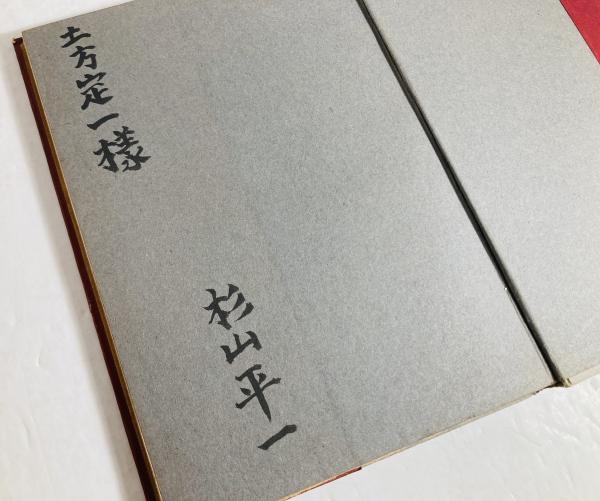 土方定一様
杉山平一